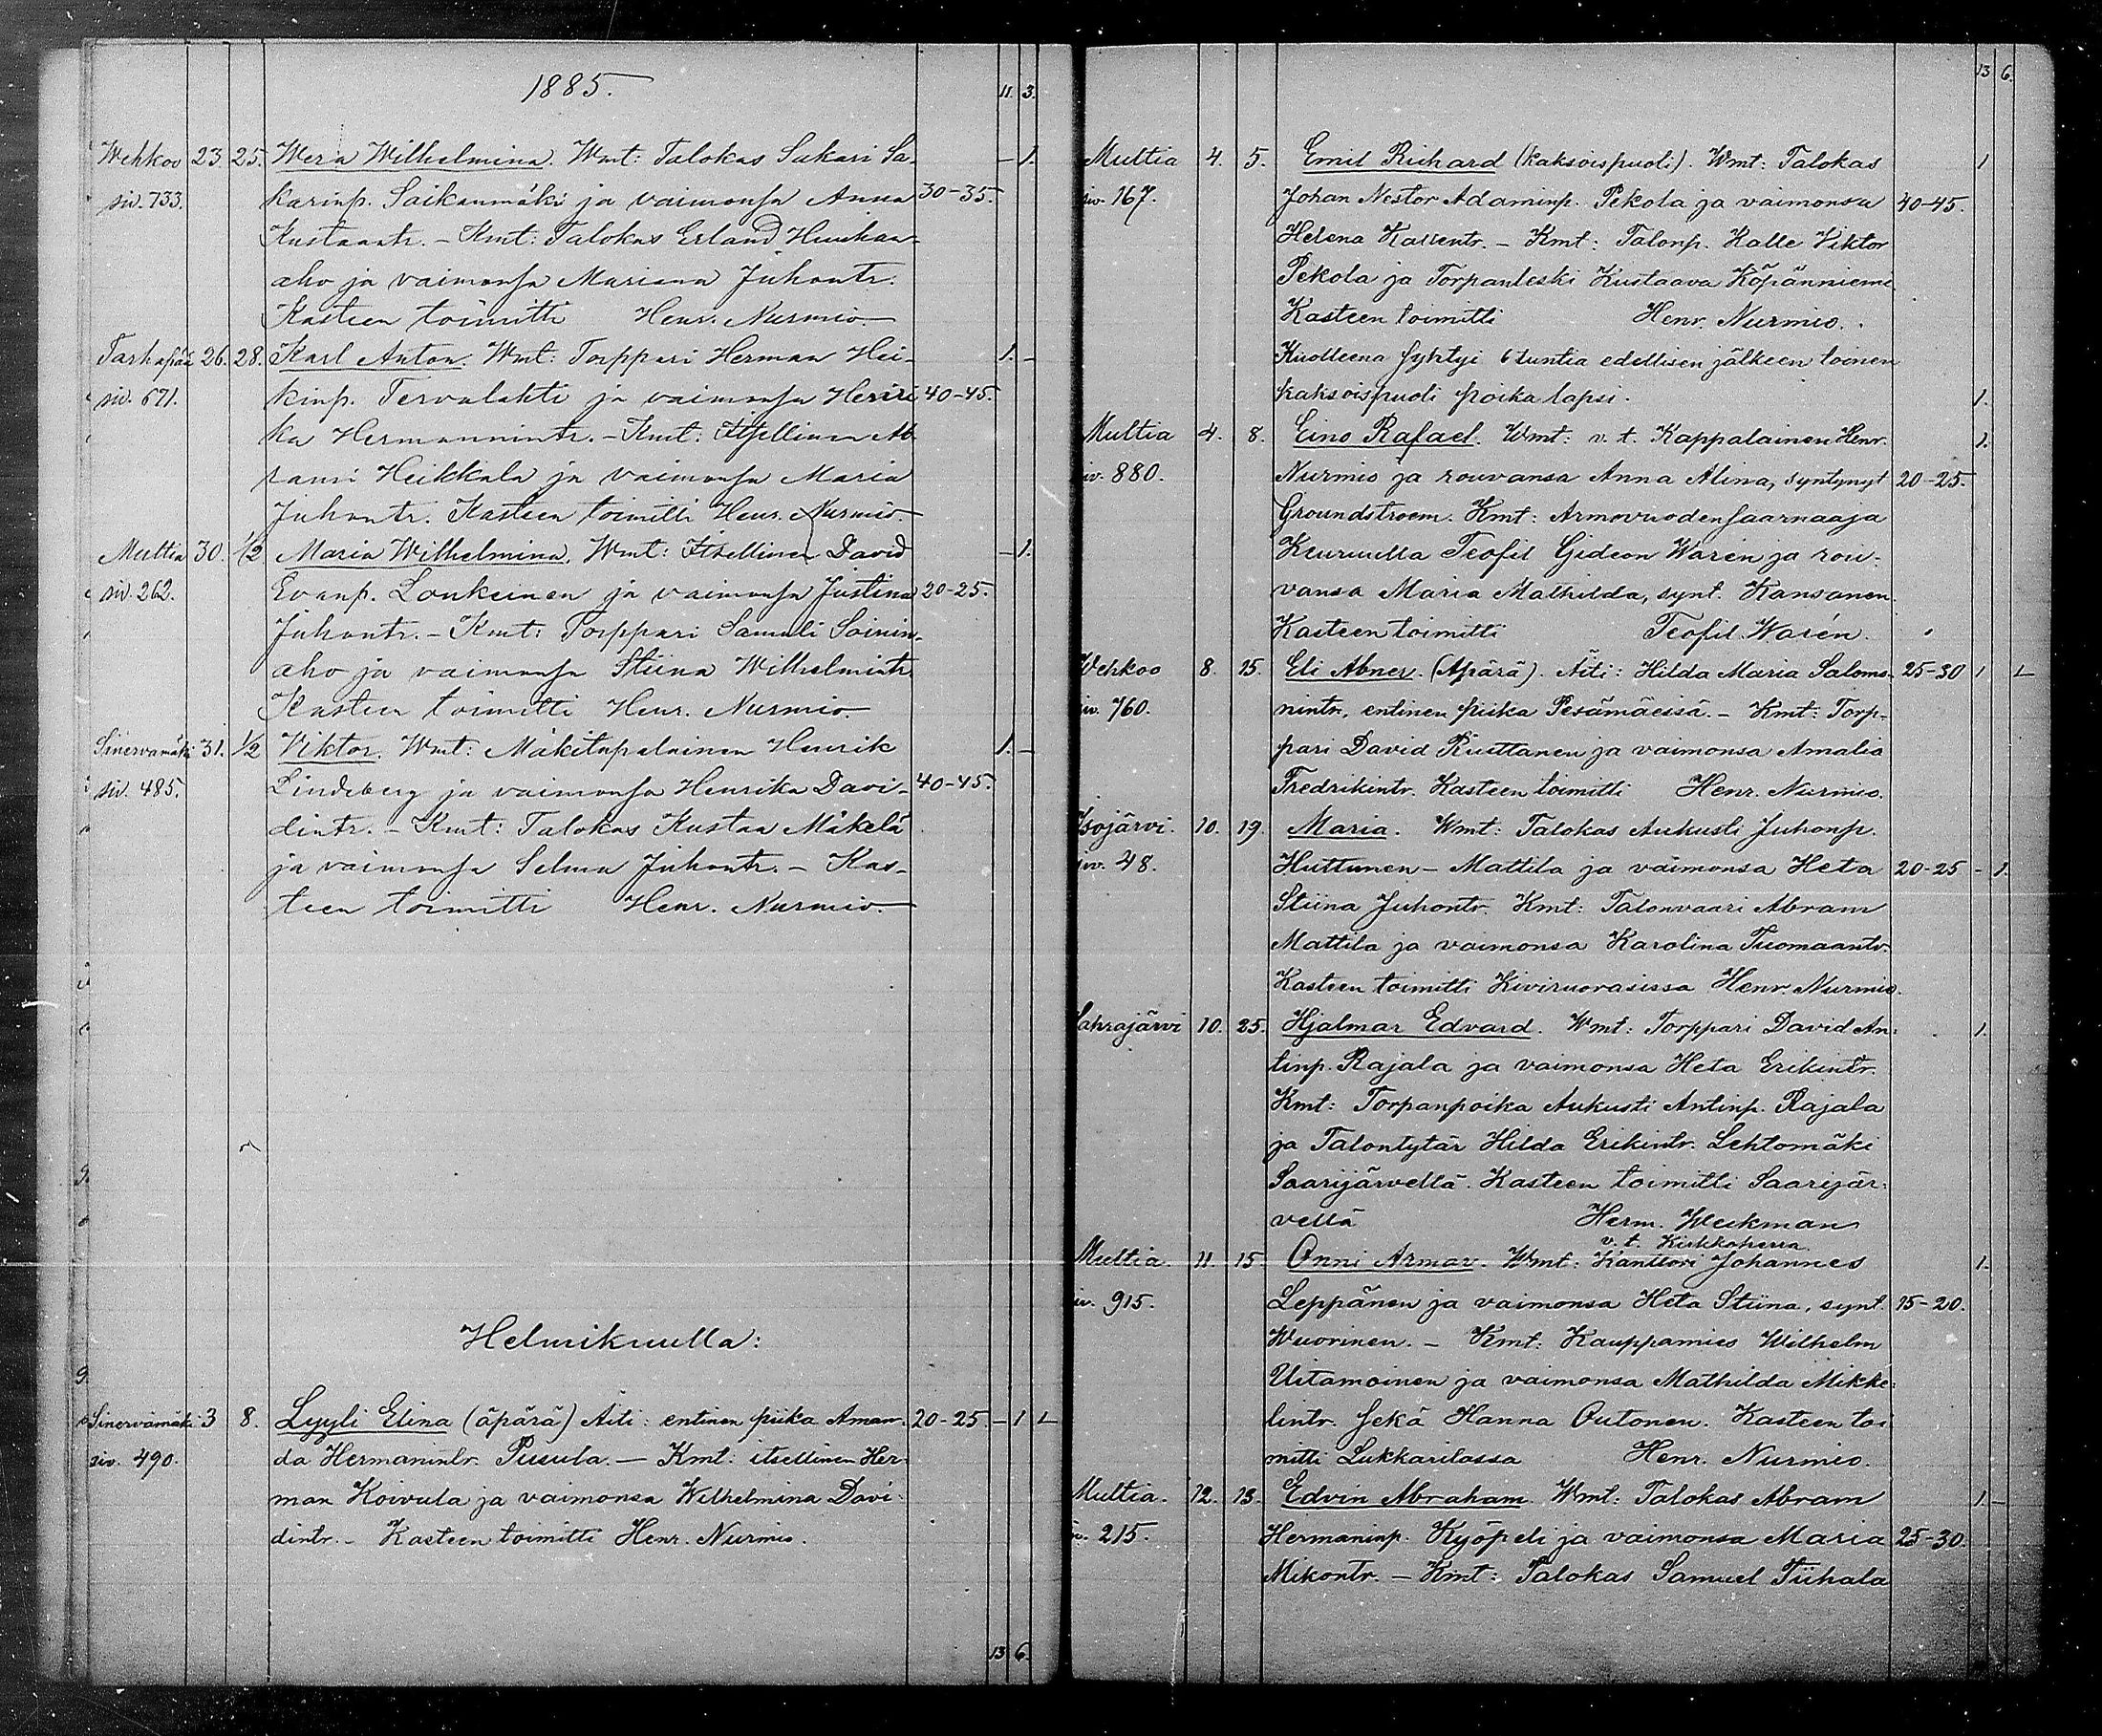 1885.
11. 3.
Wehkoo 23. 25. Wera Wilhelmina. Wmt: Talokas Sakari Sa- – 1.
siv. 733. karinp. Saikanmäki ja vaimonsa Anna 30-35.
Kustaantr. – Kmt: Talokas Erland Huuhan-
aho ja vaimonsa Mariana Juhontr.
Kasteen toimitti Henr. Nurmio.
Tarhapää 26. 28. Karl Anton. Wmt: Torppari Herman Hei- 1. –
siv. 671. kinp. Tervalahti ja vaimonsa Henri 40-45.
ka Hermanninntr. – Kmt: Itsellinen Ab
rami Heikkala ja vaimonsa Maria
Juhontr. Kasteen toimitti Henr. Nurmio.
Multia 30. 1/2 Maria Wilhelmina. Wmt: Itsellinen David – 1.
siv. 262. Evanp. Loukeinen ja vaimonsa Justina 20-25.
Juhontr. – Kmt: Torppari Samuli Soinin-
aho ja vaimonsa Stiina Wilhelmintr.
Kasteen toimitti Henr. Nurmio.
Sinervämäki 31. 1/2 Viktor. Wmt: Mäkitupalainen Henrik 1. –
siv. 485. Lindeberg ja vaimonsa Henrika Davi- 40-45.
dintr. – Kmt: Talokas Kustaa Mäkelä
ja vaimonsa Selma Juhontr. – Kas-
teen toimitti Henr. Nurmio.
Helmikuulla:
Sinervämäki 3 8. Lyyli Elina (äpärä) Äiti: entinen piika Aman- 20-25. – 1 1–
siv. 490. da Hermanintr. Pusula. – Kmt: itsellinen Her-
man Koivula ja vaimonsa Wilhelmina Davi-
dintr. – Kasteen toimitti Henr. Nurmio.
13 6.
13 6.
Multia 4. 5. Emil Richard (kaksoispuoli). Wmt: Talokas 1
siv. 167. Johan Nestor Adaminp. Pekola ja vaimonsa 40-45.
Helena Kallentr. – Kmt: Talonp. Kalle Viktor
Pekola ja Torpanleski Kustaava Köpänniemi
Kasteen toimitti Henr. Nurmio.
Kuolleena syntyi 6 tuntia edellisen jälkeen toinen
kaksoispuoli poika lapsi. 1.
Multia 4. 8. Eino Rafael. Wmt: v. t. Kappalainen Henr. 1.
iv. 880. Nurmio ja rouvansa Anna Alina, syntynyt 20-25.
Groundstroem. Kmt: Armovuodensaarnaaja
Keuruulla Teofil Gideon Warén ja rou-
vansa Maria Mathilda, synt. Kansanen.
Kasteen toimitti Teofil Warén.
Wehkoo 8. 15. Eli Abner. (Äpärä). Äiti: Hilda Maria Salomo- 25-30 1 1–
iv. 760. nintr, entinen piika Pesämäessä. – Kmt: Torp-
pari David Ruittanen ja vaimonsa Amalia
Fredrikintr. Kasteen toimitti Henr. Nurmio.
Isojärvi. 10. 19. Maria. Wmt: Talokas Aukusti Juhonp.
siv. 48. Huttunen – Mattila ja vaimonsa Heta 20-25 – 1.
Stiina Juhontr. Kmt: Talonvaari Abram
Mattila ja vaimonsa Karolina Tuomaantr.
Kasteen toimitti Kiviruorasissa Henr. Nurmio.
Sahrajärvi 10. 25. Hjalmar Edvard. Wmt: Torppari David An- 1.
tinp. Rajala ja vaimonsa Heta Erikintr.
Kmt: Torpanpoika Aukusti Antinp. Rajala
ja Talontytär Hilda Erikintr. Lehtomäki
Saarijärvellä. Kasteen toimitti Saarijär-
vellä Herm. Weckman
v. t. Kirkkoherra
Multia. 11. 15. Onni Armar. Wmt: Kanttori Johannes 1.
iv. 915. Leppänen ja vaimonsa Heta Stiina, synt. 15-20.
Wuorinen. – Kmt: Kauppamies Wilhelm
Uitamoinen ja vaimonsa Mathilda Mikke-
lintr. sekä Hanna Outonen. Kasteen toi
mitti Lukkarilassa Henr. Nurmio.
Multia. 12. 13. Edvin Abraham. Wmt: Talokas Abram 1 –
iv. 215. Hermaninp. Kyöpeli ja vaimonsa Maria 25-30.
Mikontr. – Kmt: Talokas Samuel Tiihala